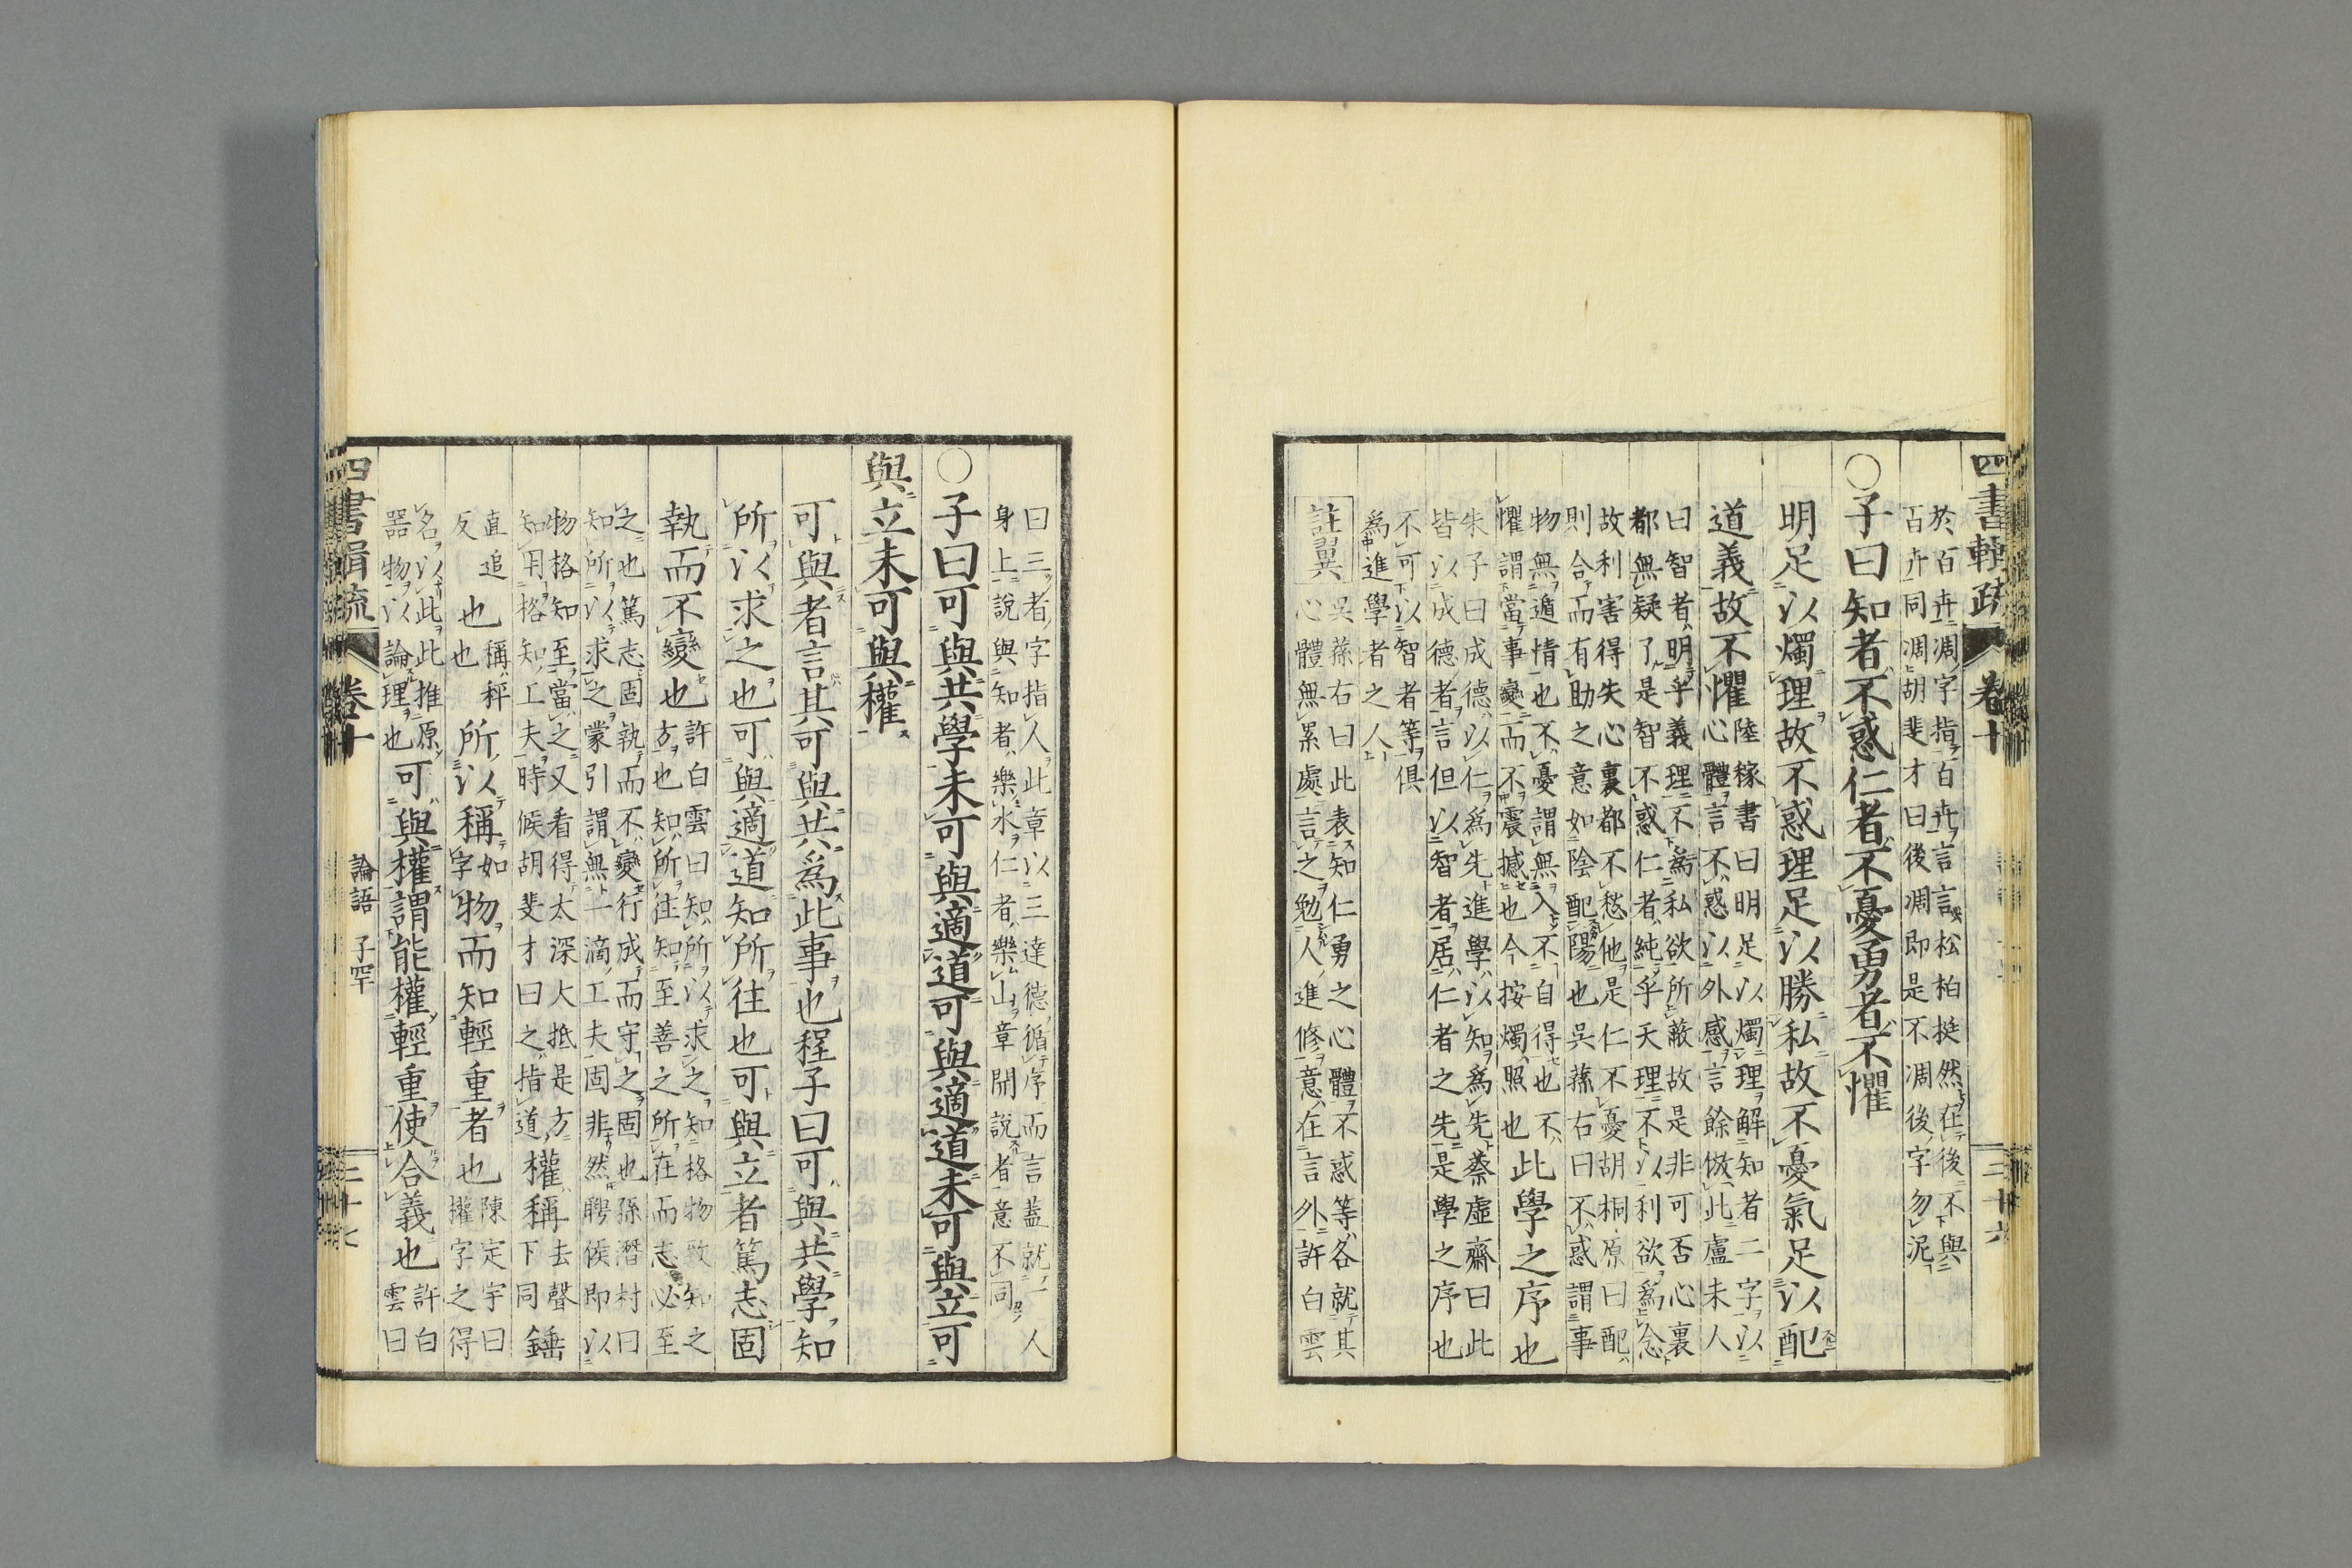 四書輯疏 卷十 二十六
於百卉凋字指百卉言言松柏挺然在後不與
百卉同凋胡斐才曰後凋即是不凋後字勿泥
○子曰知者不惑仁者不憂勇者不懼
明足以燭理故不惑理足以勝私故不憂氣足以配
道義故不懼
陸稼書曰明足以燭理解知者二字以
心體言不惑以外感言餘倣此盧未人
曰智者明乎義理不為私欲所蔽故是非可否心裏
都無疑了是智不惑仁者純乎天理不以利欲為念
故利害得失心裏都不愁他是仁不憂胡桐原曰配
則合而有助之意如陰配陽也吳蓀右曰不惑謂事
物無遁情也不憂謂無入不自得也不
懼謂當事變而不震撼也今按燭照也
此學之序也
朱子曰成德以仁為先進學以知為先蔡虛齋曰此
皆以成德者言但以智者居仁者之先是學之序也
不可以智者等俱
為進學者之人
註翼
吳蓀右曰此表知仁勇之心體不惑等各就其
心體無累處言之勉人進修意在言外許白雲
曰三者字指人此章以三達德循序而言蓋就一人
身上說與知者樂水仁者樂山章開說者意不同
○子曰可與共學未可與適道可與適道未可與立可
與立未可與權
可與者言其可與共為此事也程子曰可與共學知
所以求之也可與適道知所往也可與立者篤志固
執而不變也
許白雲曰知所以求之知格物致知之
方也知所往知至善之所在而志必至
之也篤志固執而不變行成而守之固也孫潛村曰
知所以求之蒙引謂無一滴工夫固非然聘侯即以
物格知至當之又看得太深大抵是方
知用格知工夫時候胡斐才曰之指道
權稱去聲下同錘
直追反
也
稱秤也
所以稱
如字
物而知輕重者也
陳定宇曰權字之得
名以此此推原
器物以論理也
可與權謂能權輕重使合義也
許白雲曰
四書輯疏 卷十 論語 子罕 二十七